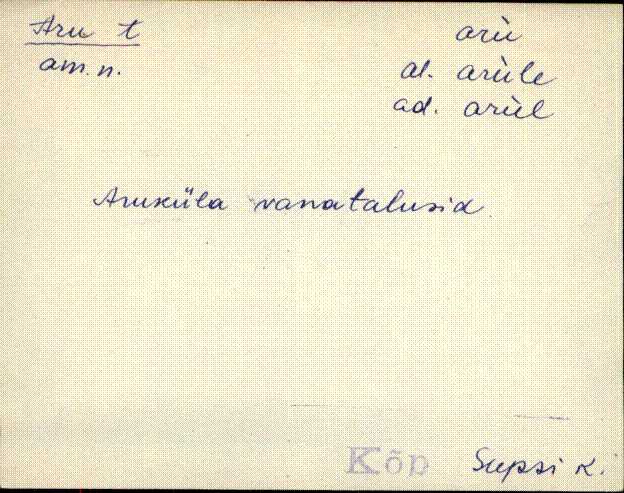 Aru t arù
am. n. al. arùle
ad. arùl
Aruküla vanatalusid
Kõp Supsi k.